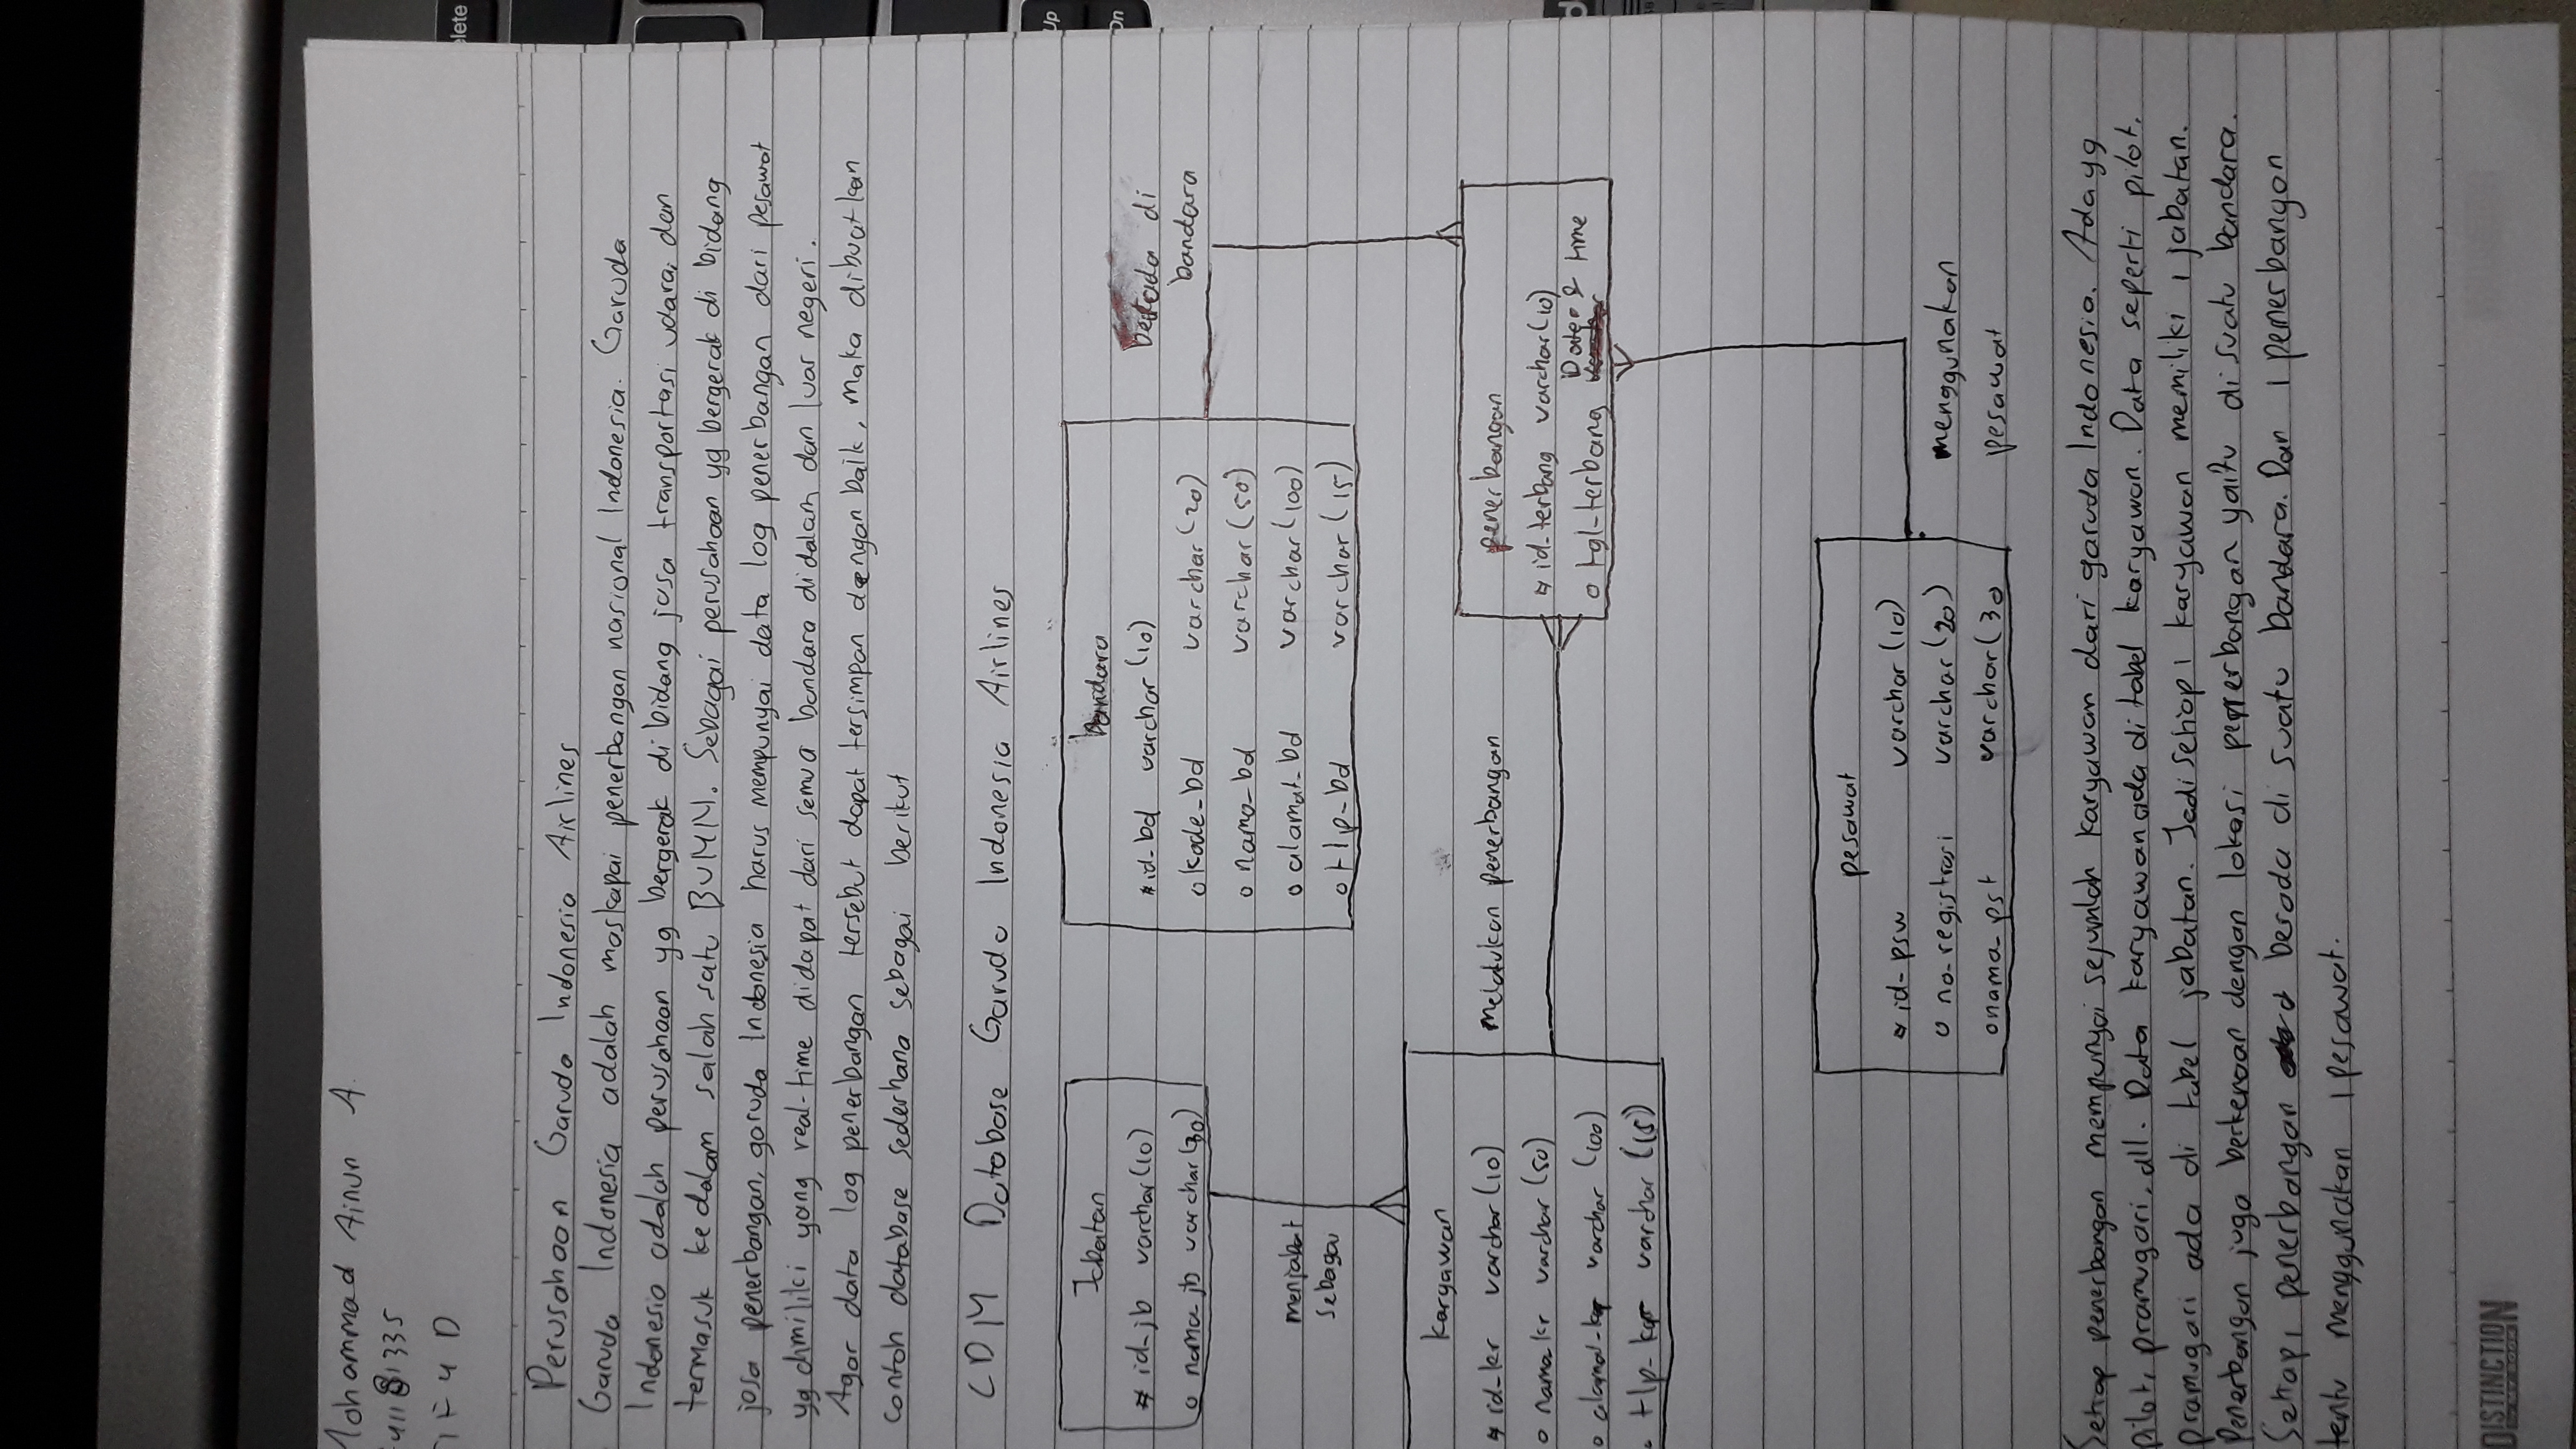 Mohammad Ainun A.
41181335
TIF 4 D
Perusahaan Garuda Indonesia Airlines
Garuda Indonesia adalah maskapai penerbangan nasional Indonesia. Garuda
Indonesia adalah perusahaan yg bergerak di bidang jasa transportasi udara, dan
termasuk kedalam salah satu BUMN. Sebagai perusahaan yg bergerak di bidang
jasa penerbangan, garuda Indonesia harus mempunyai data log penerbangan dari pesawat
yg dimiliki yang real-time didapat dari semua bandara didalam dan luar negeri.
Agar data log penerbangan tersebut dapat tersimpan dengan baik, maka dibuatkan
contoh database sederhana sebagai berikut
CDM Database Garuda Indonesia Airlines
Jabatan
* id-jb varchar (10)
o nama-jb varchar (30)
bandara
* id-bd varchar (10)
o kode-bd varchar (20)
o nama-bd varchar (50)
o alamat-bd varchar (100)
o tlp-bd varchar (15)
berada di
bandara
menjabat
sebagai
karyawan
* id-kr varchar (10)
o nama kr varchar (50)
o alamat-kr varchar (100)
o tlp-kr varchar (15)
melakukan penerbangan
penerbangan
* id-terbang varchar (10)
o tgl-terbang Date & time
pesawat
* id-psw varchar (10)
o no-registrasi varchar (20)
o nama-pst varchar (30
menggunakan
pesawat
Setiap penerbangan mempunyai sejumlah karyawan dari garuda Indonesia. Ada yg
pilot, pramugari, dll. Data karyawan ada di tabel karyawan. Data seperti pilot,
pramugari ada di tabel jabatan. Jadi setiap 1 karyawan memiliki 1 jabatan.
Penerbangan juga berkenaan dengan lokasi penerbangan yaitu di suatu bandara.
Setiap 1 penerbangan berada di suatu bandara. Dan 1 penerbangan
tentu menggunakan 1 pesawat.
DISTINCTION
elete
Up
Dn